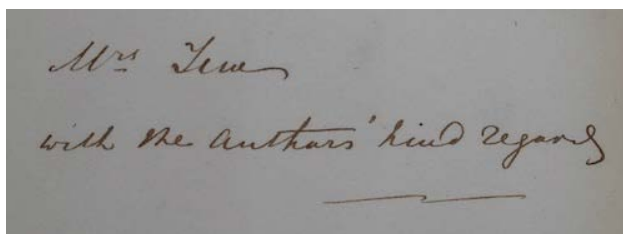 Mrs Tew
with the Authors' kind regards